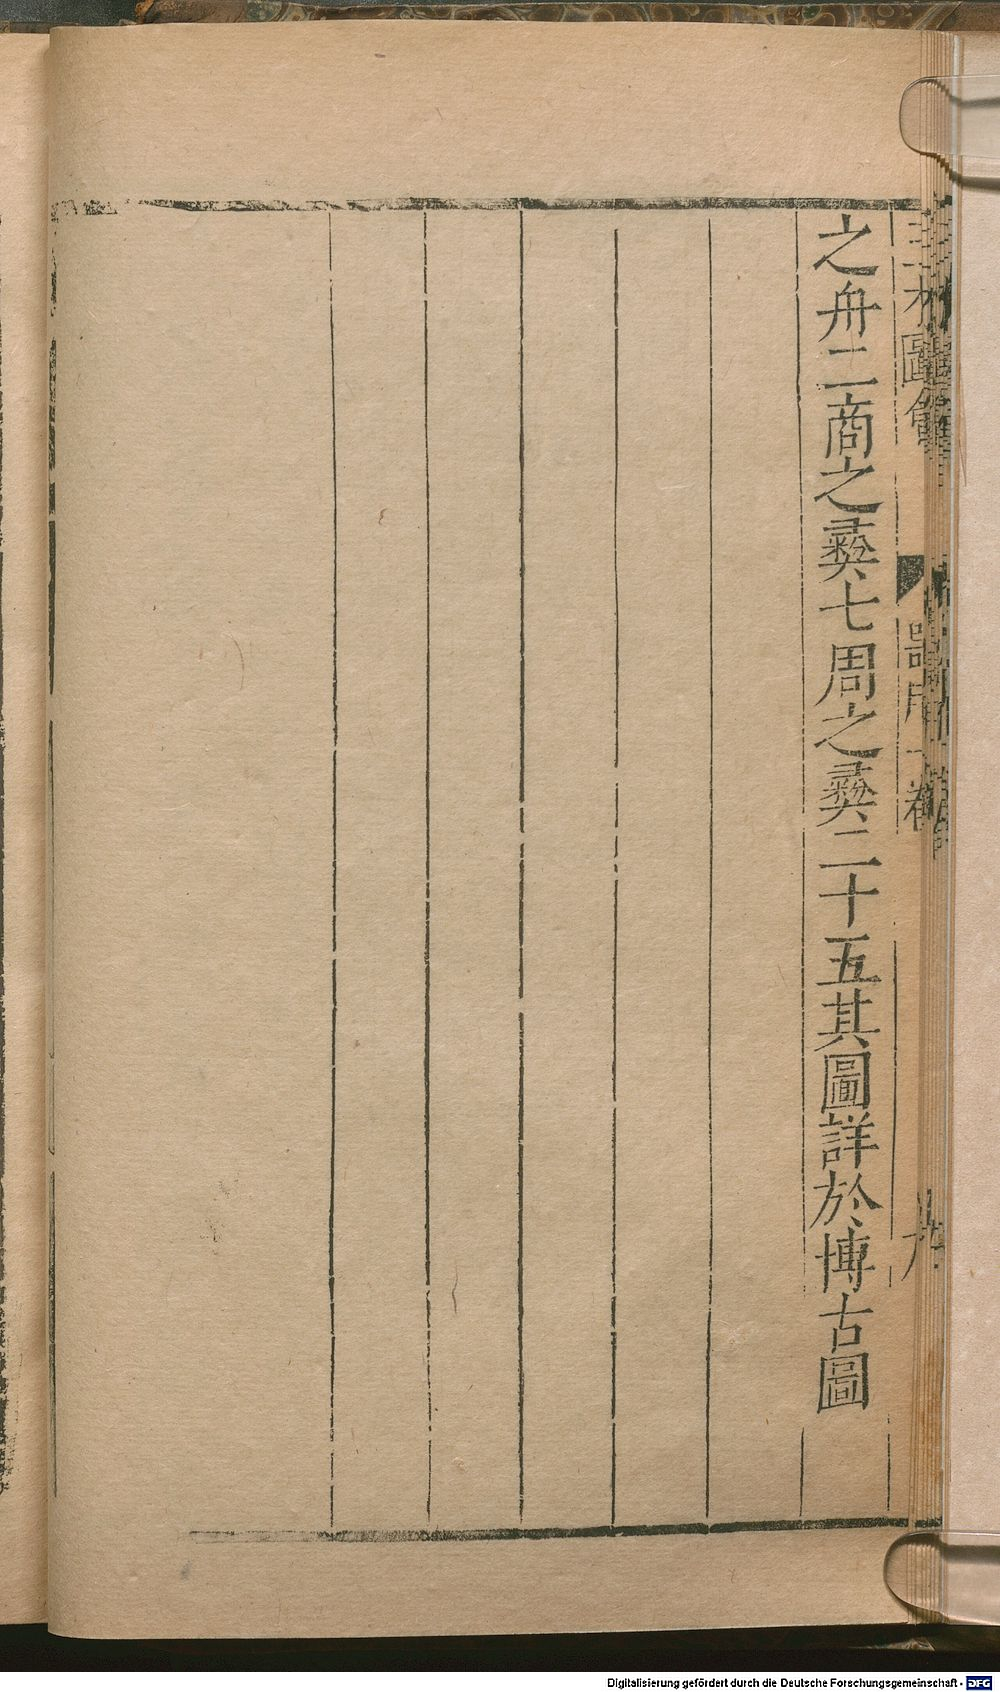 三才圖會 器用一卷
之舟二商之彝七周之彝二十五其圖詳於博古圖
Digitalisierung gefördert durch die Deutsche Forschungsgemeinschaft - DFG